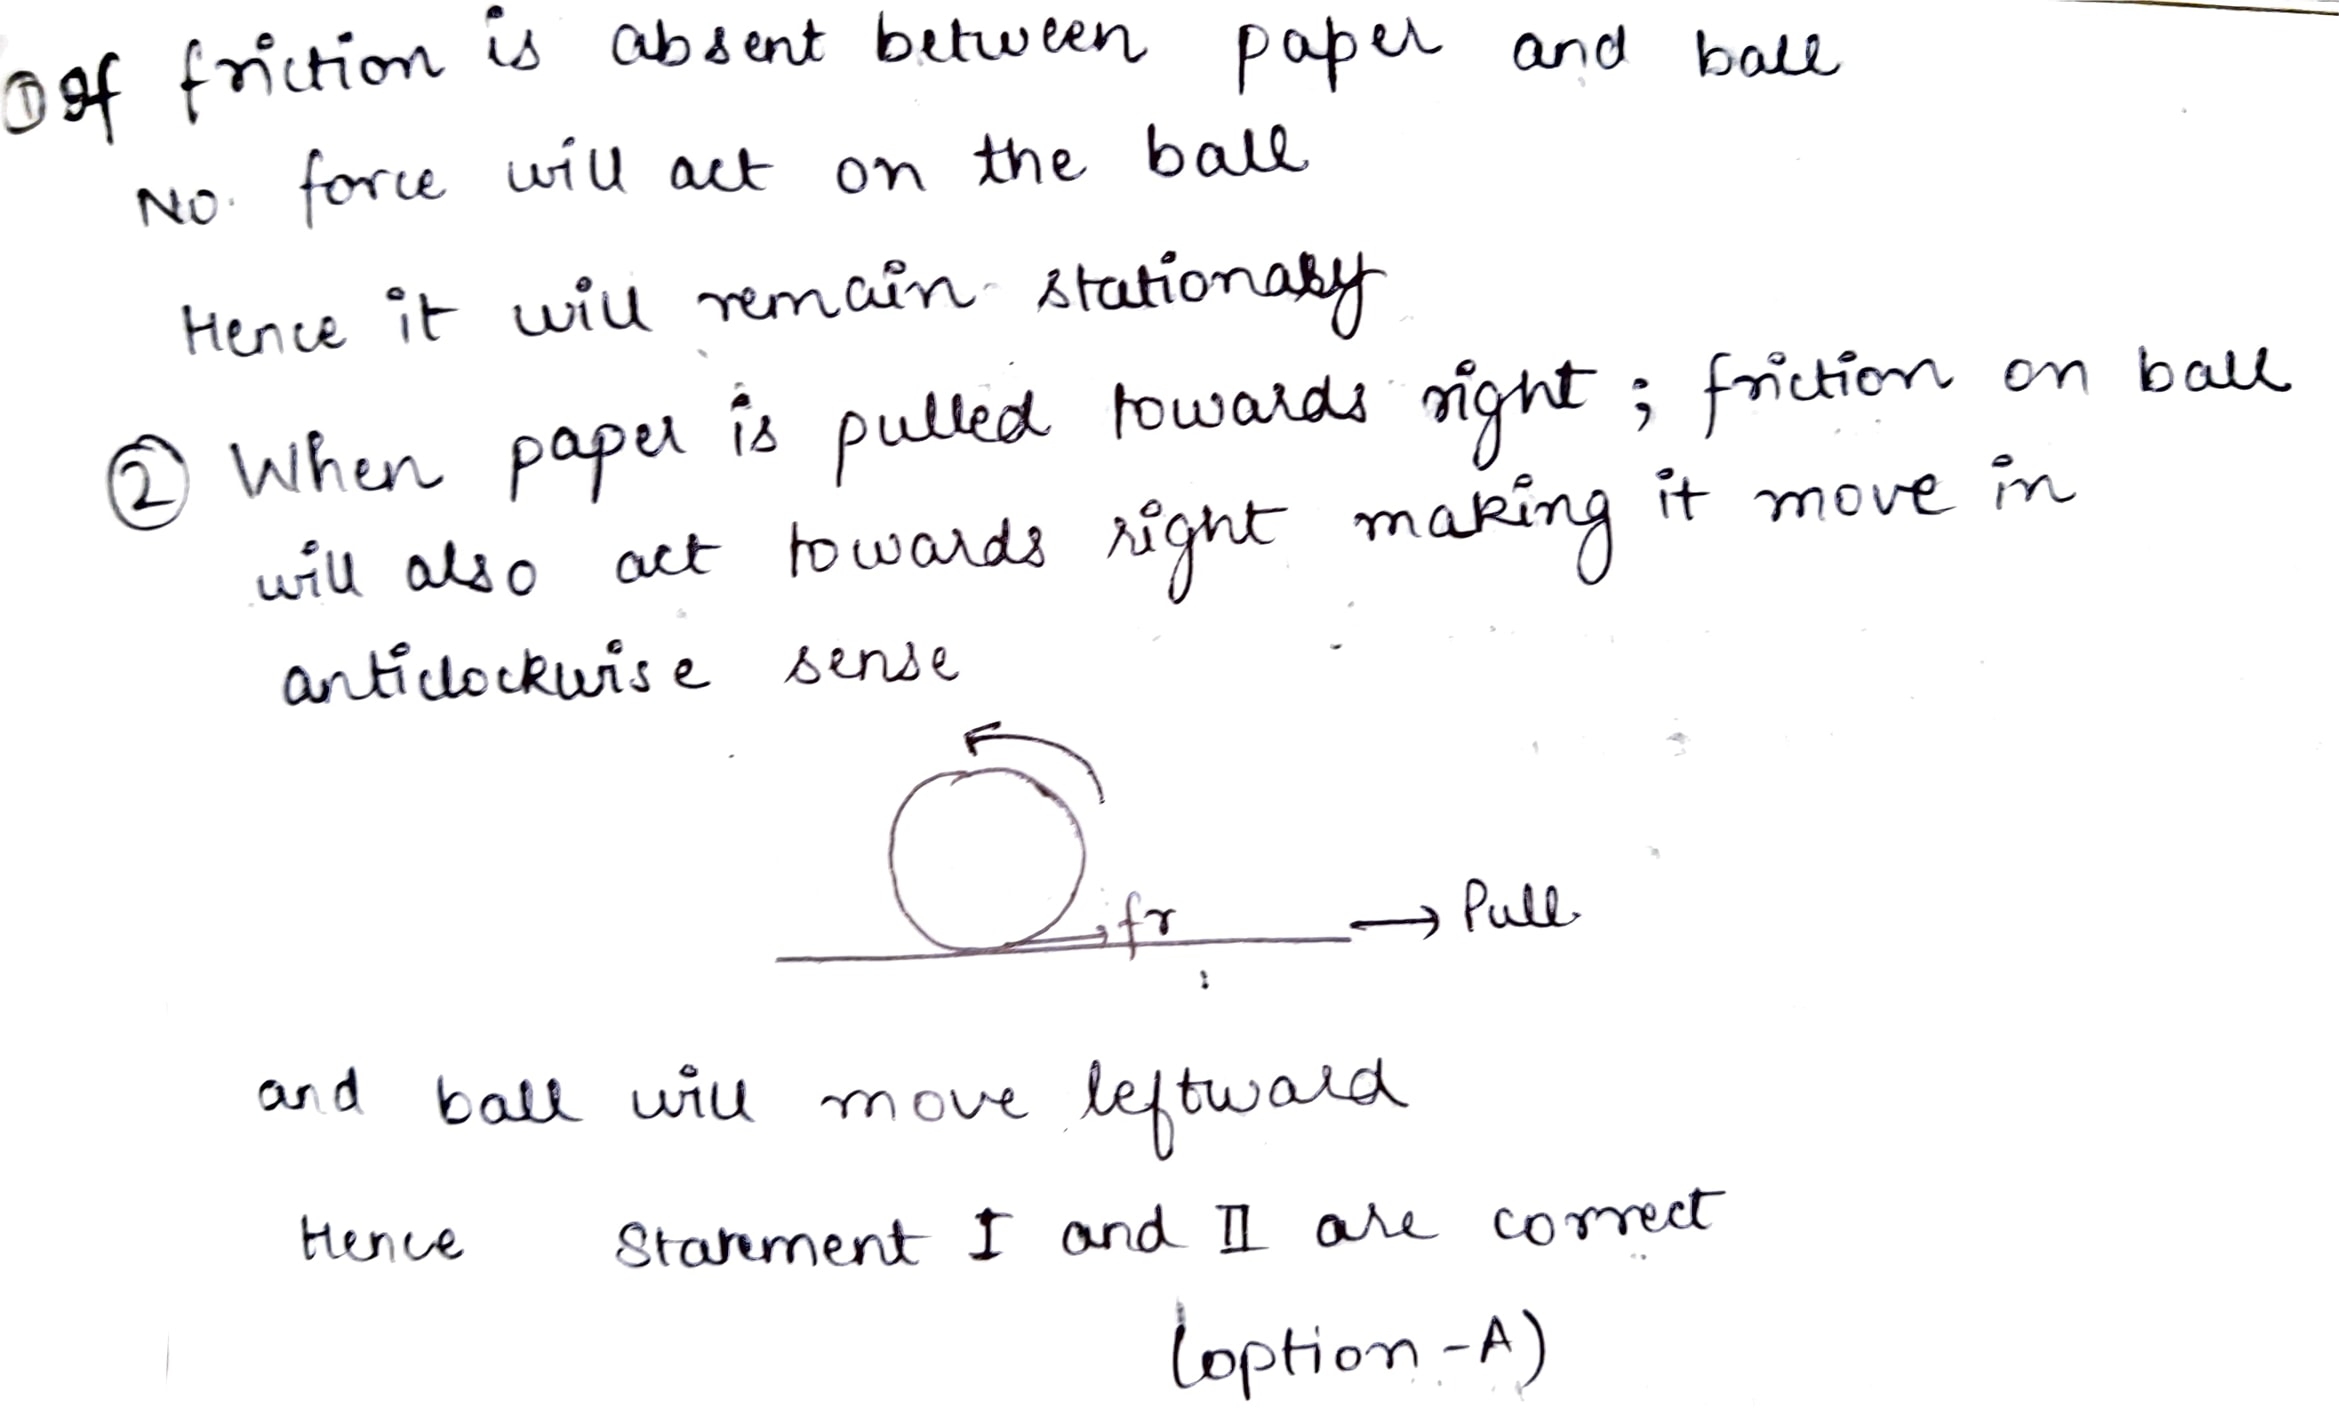 ① If friction is absent between paper and ball
No. force will act on the ball
Hence it will remain stationary
② When paper is pulled towards right ; friction on ball
will also act towards right making it move in
anticlockwise sense
fr
→ Pull
and ball will move leftward
Hence Statement I and II are correct
(option-A)